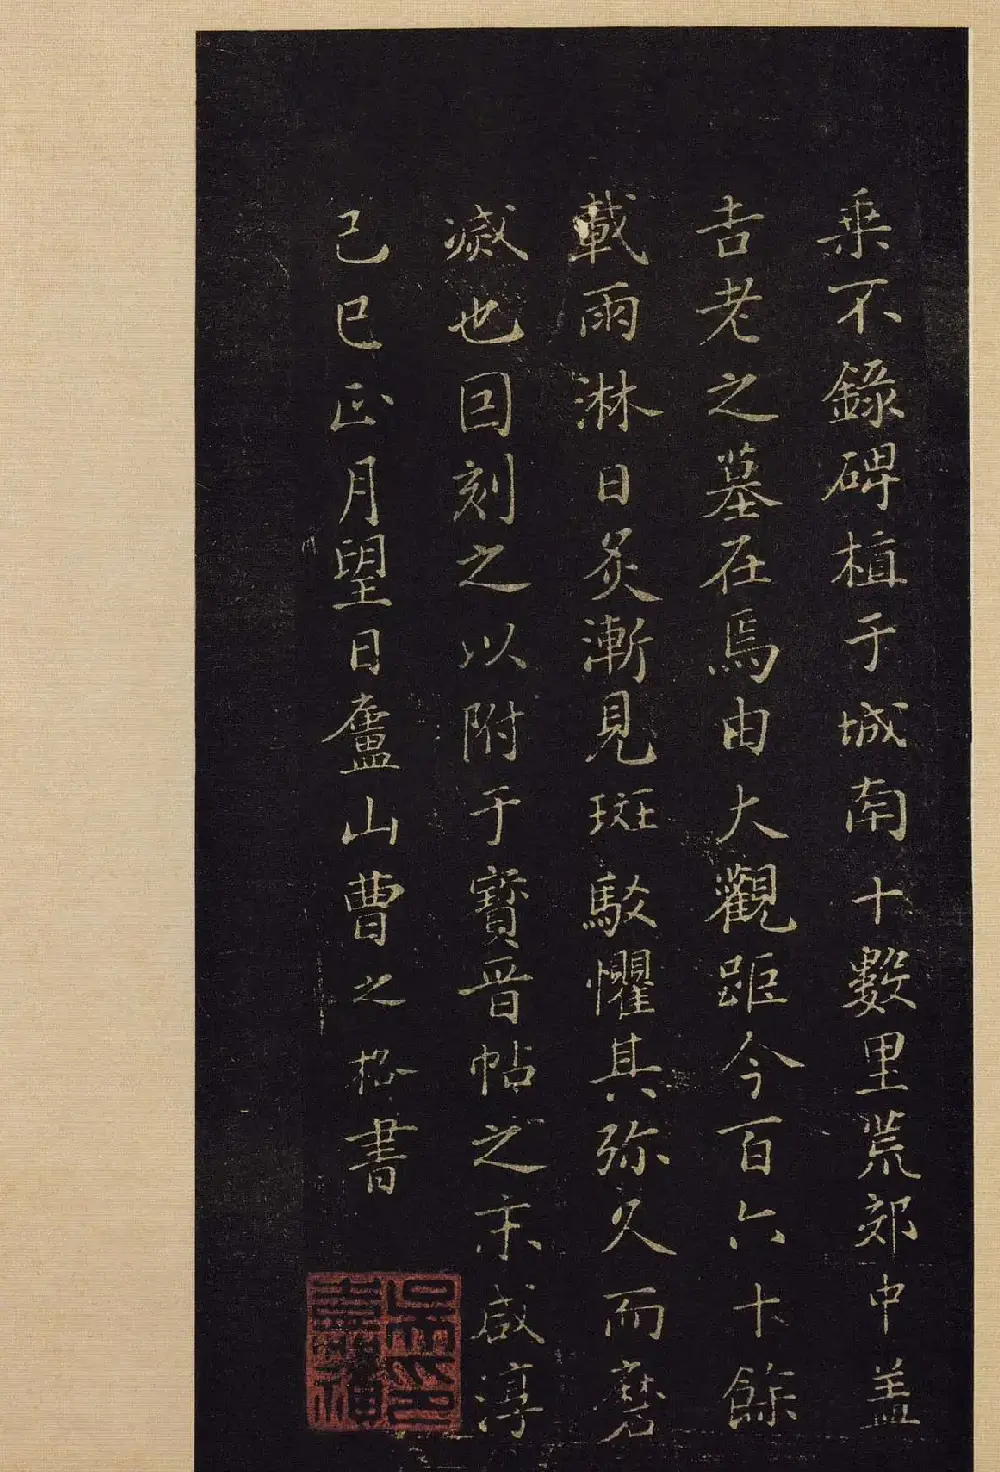 乘不錄碑植于城南十數里荒郊中蓋
吉老之墓在焉由大觀距今百六十餘
載雨淋日炙漸見斑駁懼其弥久而磨
滅也因刻之以附于寶晉帖之末咸淳
己巳正月望日廬山曹之格書